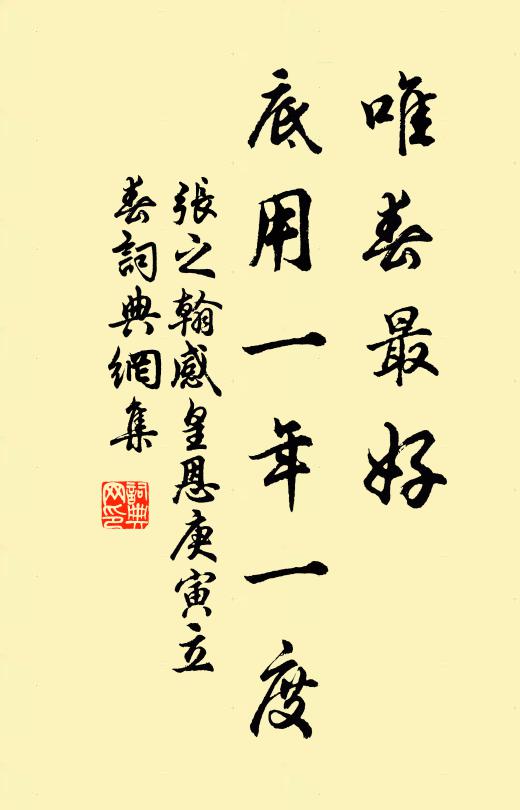 唯春最好
底用一年一度
張之翰感皇恩庚寅立
春詞典網集
詞典
网印